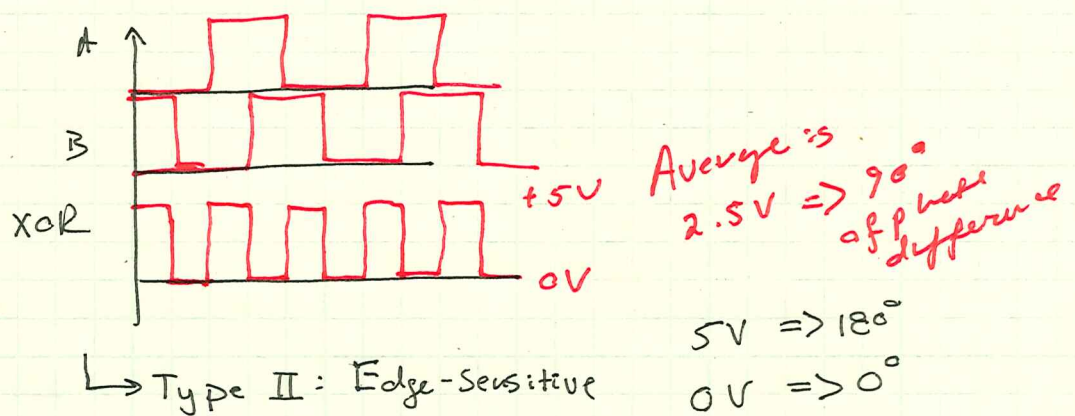 A
B
XOR
+5V
0V
Average is
2.5V => 90°
of phase
difference
5V => 180°
0V => 0°
↳ Type II: Edge-Sensitive